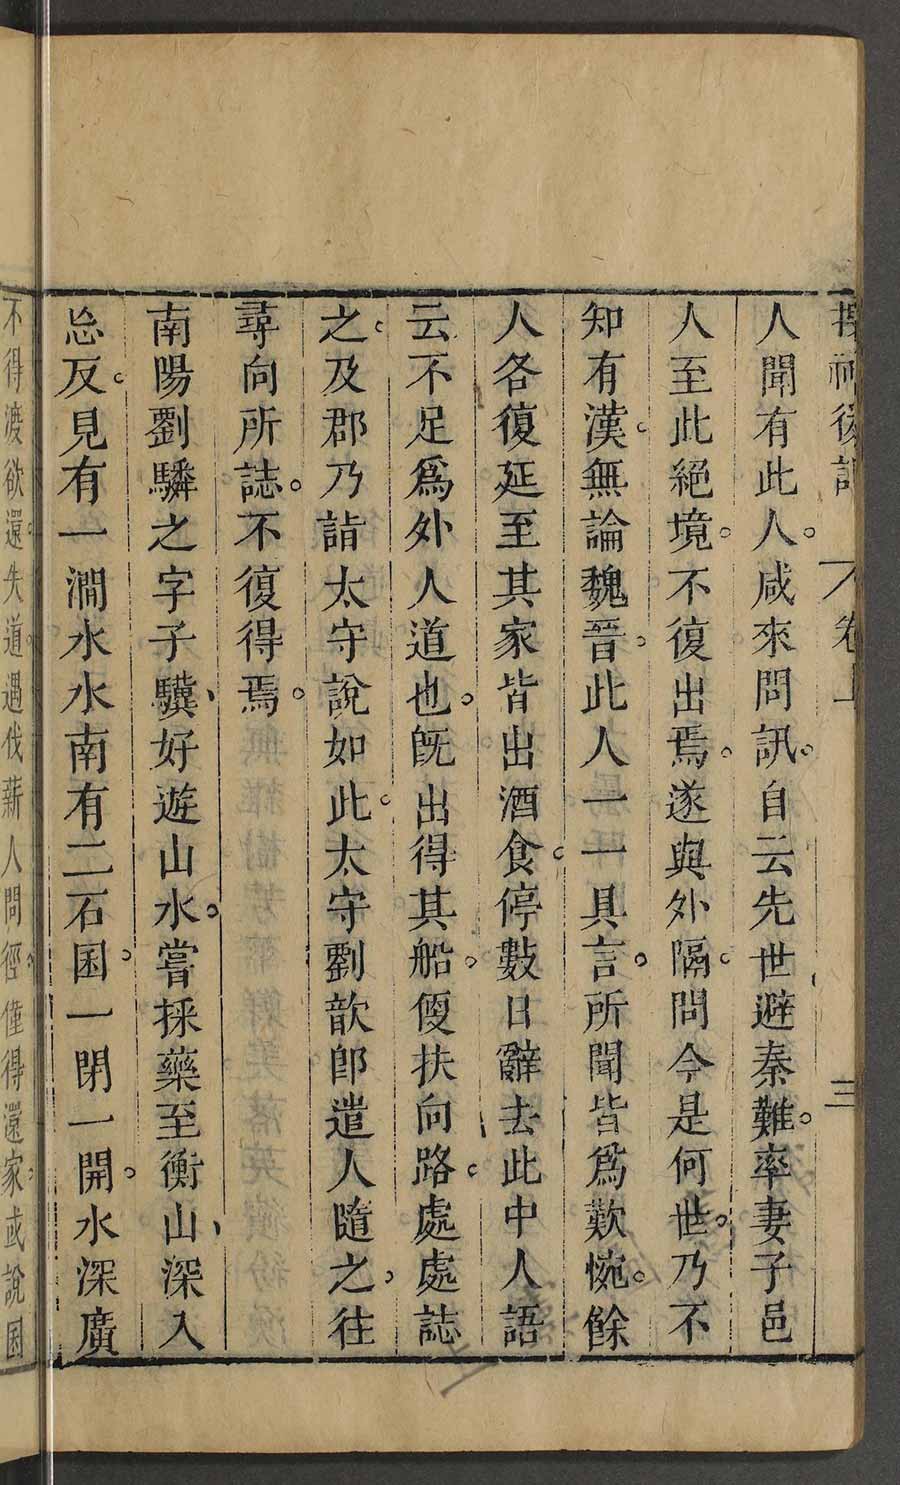 搜神後記 卷上 三
人聞有此人。咸來問訊。自云先世避秦難。率妻子邑
人至此絕境。不復出焉。遂與外隔。問今是何世。乃不
知有漢。無論魏晉。此人一一具言。所聞皆爲歎惋。餘
人各復延至其家皆出酒食。停數日辭去此中人語
云不足爲外人道也。旣出得其船。便扶向路。處處誌
之。及郡乃詣太守說如此。太守劉歆卽遣人隨之。往
尋向所誌。不復得焉。
南陽劉驎之字子驥、好遊山水。嘗採藥至衡山、深入
忘反。見有一澗水水南有二石囷。一閉一開。水深廣
不得渡欲還。失道。遇伐薪人問徑。僅得還家。或說囷